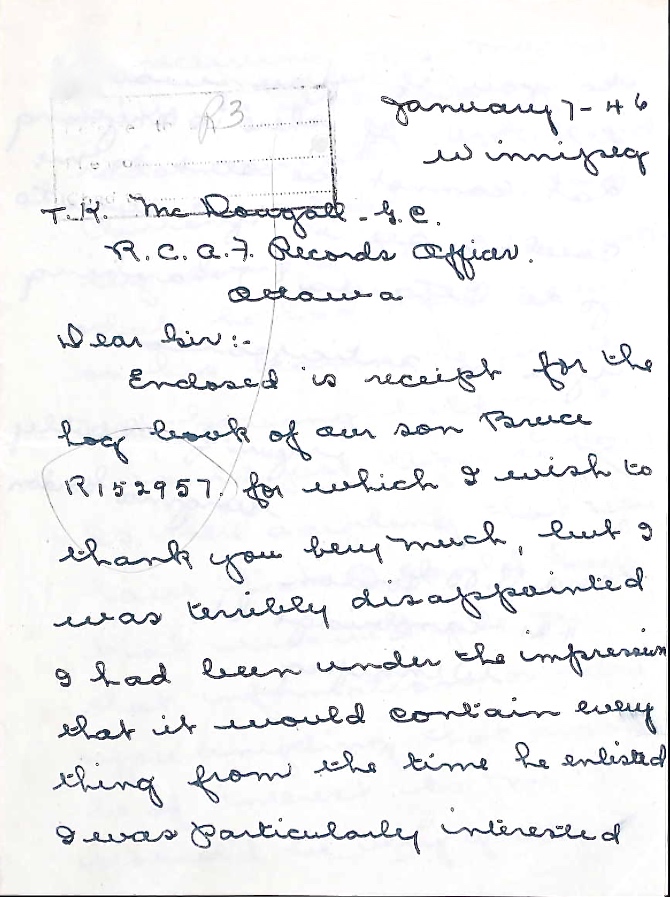 R3
January 7-46
Winnipeg
T.K. McDougall - G.C.
R.C.A.F. Records Officer.
Ottawa
Dear Sir:-
Enclosed is receipt for the
log book of our son Bruce
R152957. for which I wish to
thank you very much, but I
was terribly disappointed
I had been under the impression
that it would contain every
thing from the time he enlisted
I was particularly interested